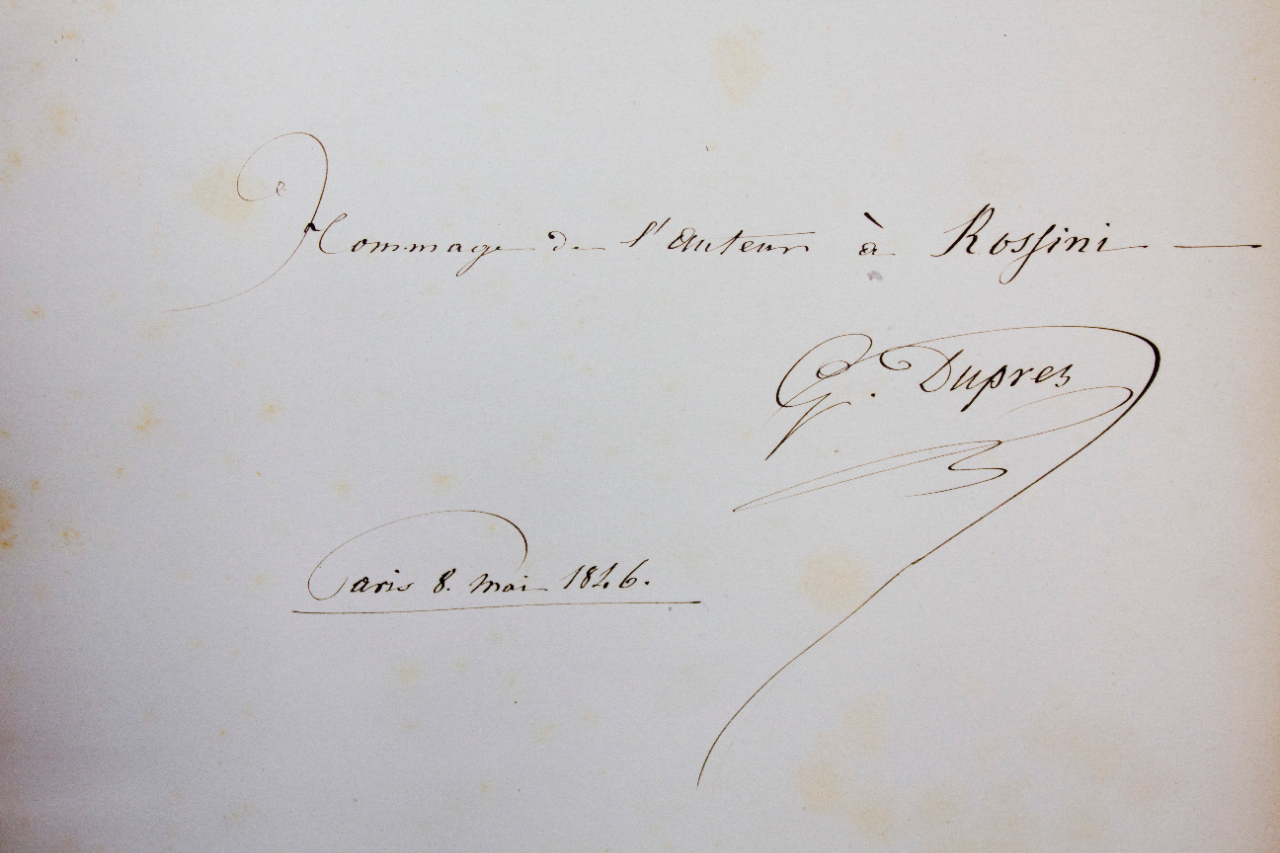 Hommage de l'auteur à Rossini —
G. Duprez
Paris 8. mai 1846.